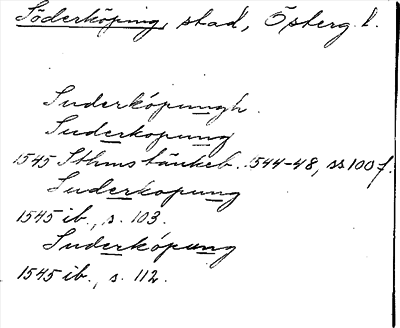 Söderköping, stad, Österg. l.
Suderkópungh.
Suderkopung
1545 Sthms tänkeb. 1544-48, ss 100 f.
Suderkopung
1545 ib., s. 103.
Suderkópung
1545 ib., s. 112.